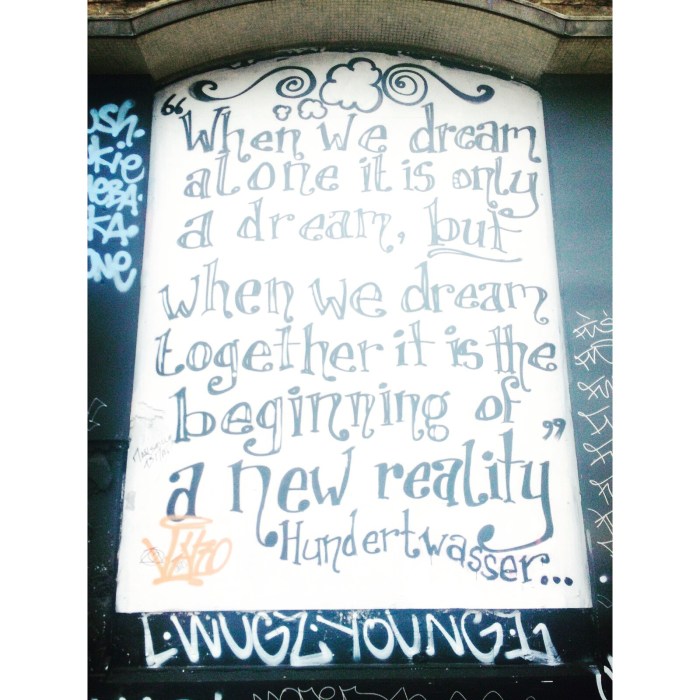 “When we dream
alone it is only
a dream, but
when we dream
together it is the
beginning of
a new reality”
Hundertwasser...
L.WUGZ.YOUNG1